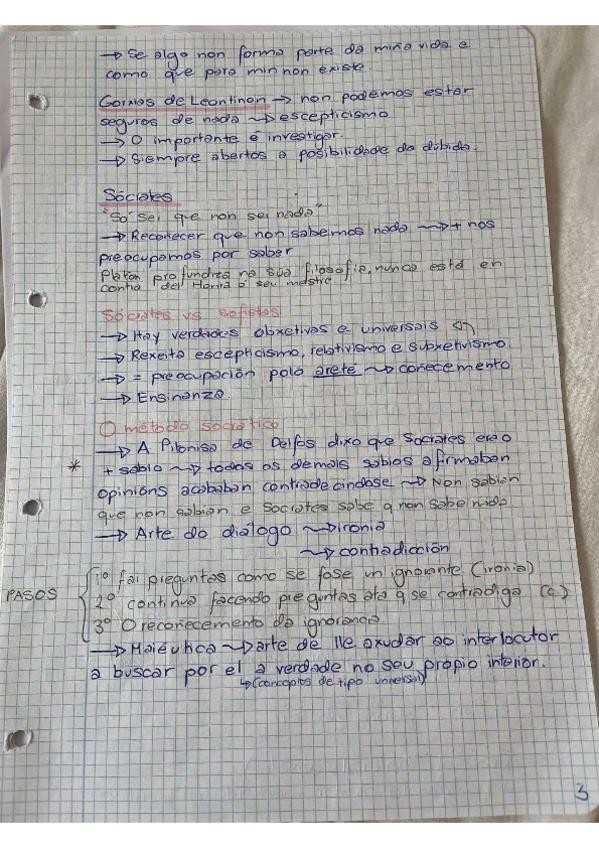 → Se algo non forma parte da miña vida e
como que para min non existe.
Gorxias de Leontinon → non podemos estar
seguros de nada ~> escepticismo
→ O importante é investigar.
→ Siempre abertos a posibilidade da dúbida.
Sócrates
"Só sei que non sei nada"
→ Reconecer que non sabemos nada ~> + nos
preocupamos por saber
Platón profundiza na súa filosofía, nunca está en
contra del. Honra o seu mestre
Sócrates vs sofistas
→ Hay verdades obxetivas e universais
→ Rexeita escepticismo, relativismo e subxetivismo
→ = preocupación pola areté ~> coñecemento
→ Ensinanza.
O método socrático
→ A Pitonisa de Delfos dixo que Socrates era o
* + sabio ~> todos os demais sabios afirmaban
opinións acababan contradecindose ~> Non sabían
que non sabían e Socrates sabe q non sabe nada
→ Arte do diálogo ~> ironía
~> contradicción
PASOS { 1º fai preguntas como se fose un ignorante (ironía)
2º continua facendo preguntas ata q se contradiga (c)
3º O recoñecemento da ignorancia
→ Maiéutica ~> arte de lle axudar ao interlocutor
a buscar por el a verdade no seu propio interior.
↳ (conceptos de tipo universal)
3